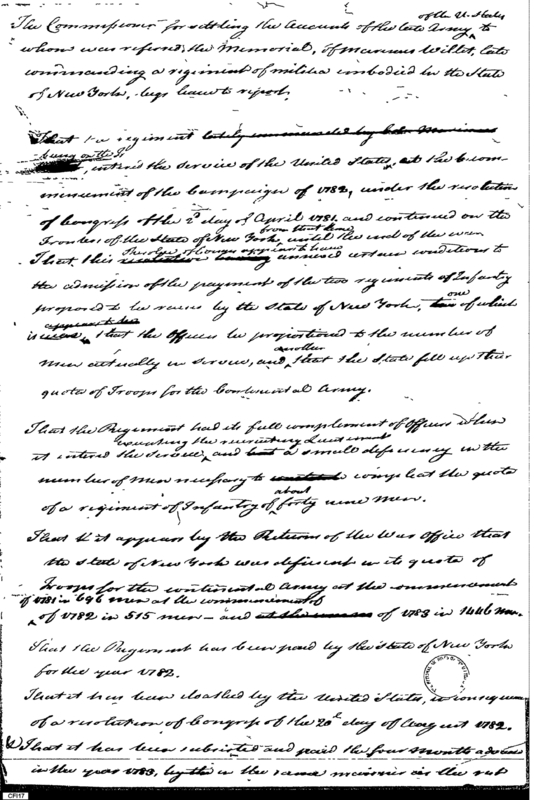 of the U. States
The Commissioner for settling the Accounts of the late Army, to
whom was refered, the Memorial, of Marinus Willet, late
commanding a regiment of militia embodied by the State
of New York, begs leave to report,
That the regiment lately commanded by Colo. Marinus
being on the
entered the service of the United States, at the Com-
mencement of the Campaign of 1782, under the resolution
of Congress of the 2d day of April 1781, and continued on the
from that time
Frontier of the State of New York, until the end of the war.
That this resolution annexed certain conditions to
the admission of the payment of the two regiments of Infantry
proposed to be raised by the State of New York, two of which
one
is that the officers be proportioned to the number of
another
men actually in service, and, that the State fill up their
quota of Troops for the Continental Army.
That the Regiment had its full complement of Officers when
it entered the service, and a small deficiency in the
number of men necessary to compleat the quota
about
of a regiment of Infantry of forty nine men.
That it appears by the Returns of the War Office that
the State of New York was deficient in its quota of
Troops for the continental Army at the commencement
of 1781 in 696 men at the commencement of
of 1782 in 515 men – and of 1783 in 1446 men.
That the Regiment has been paid by the State of New York
for the year 1782.
That it has been cloathed by the United States, in consequence
of a resolution of Congress of the 20th day of August 1782.
That it has been subsisted and paid the four Months advance
in the year 1783, by the in the same manner as the rest
CFI17